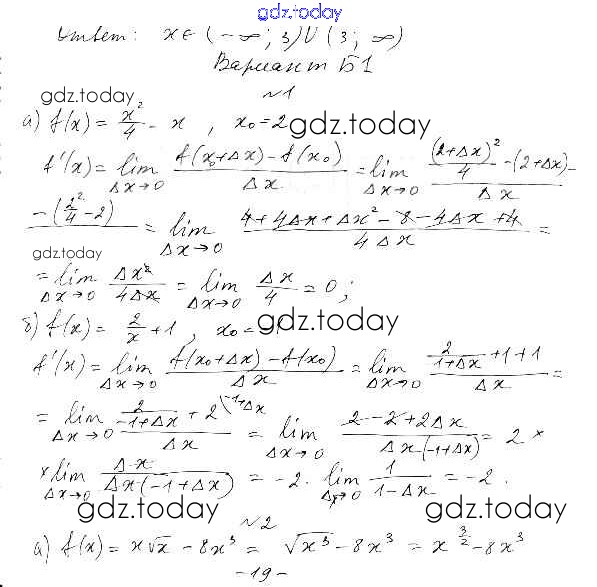 gdz.today
Ответ: x∈(-∞; 3)∪(3; ∞)
Вариант Б1
gdz.today
№1
а) f(x) = x²/4 - x , x₀=2 gdz.today
f'(x) = lim_{Δx→0} (f(x₀+Δx)-f(x₀))/Δx = lim_{Δx→0} ((2+Δx)²/4 - (2+Δx) -
-(2²/4 - 2))/Δx = lim_{Δx→0} (4+4Δx+Δx²-8-4Δx+4)/(4Δx) =
gdz.today
= lim_{Δx→0} Δx²/(4Δx) = lim_{Δx→0} Δx/4 = 0;
б) f(x) = 2/x + 1 , x₀ = gdz.today
f'(x) = lim_{Δx→0} (f(x₀+Δx)-f(x₀))/Δx = lim_{Δx→0} (2/(1+Δx) + 1 + 1)/Δx =
= lim_{Δx→0} (2/(-1+Δx) + 2\-1+Δx)/Δx = lim_{Δx→0} (2-2+2Δx)/(Δx(-1+Δx)) = 2 ×
× lim_{Δx→0} Δx/(Δx(-1+Δx)) = -2· lim_{Δx→0} 1/(1-Δx) = -2.
gdz.today №2 gdz.today
а) f(x) = x√x - 8x³ = √x³ - 8x³ = x^{3/2} - 8x³
-19-